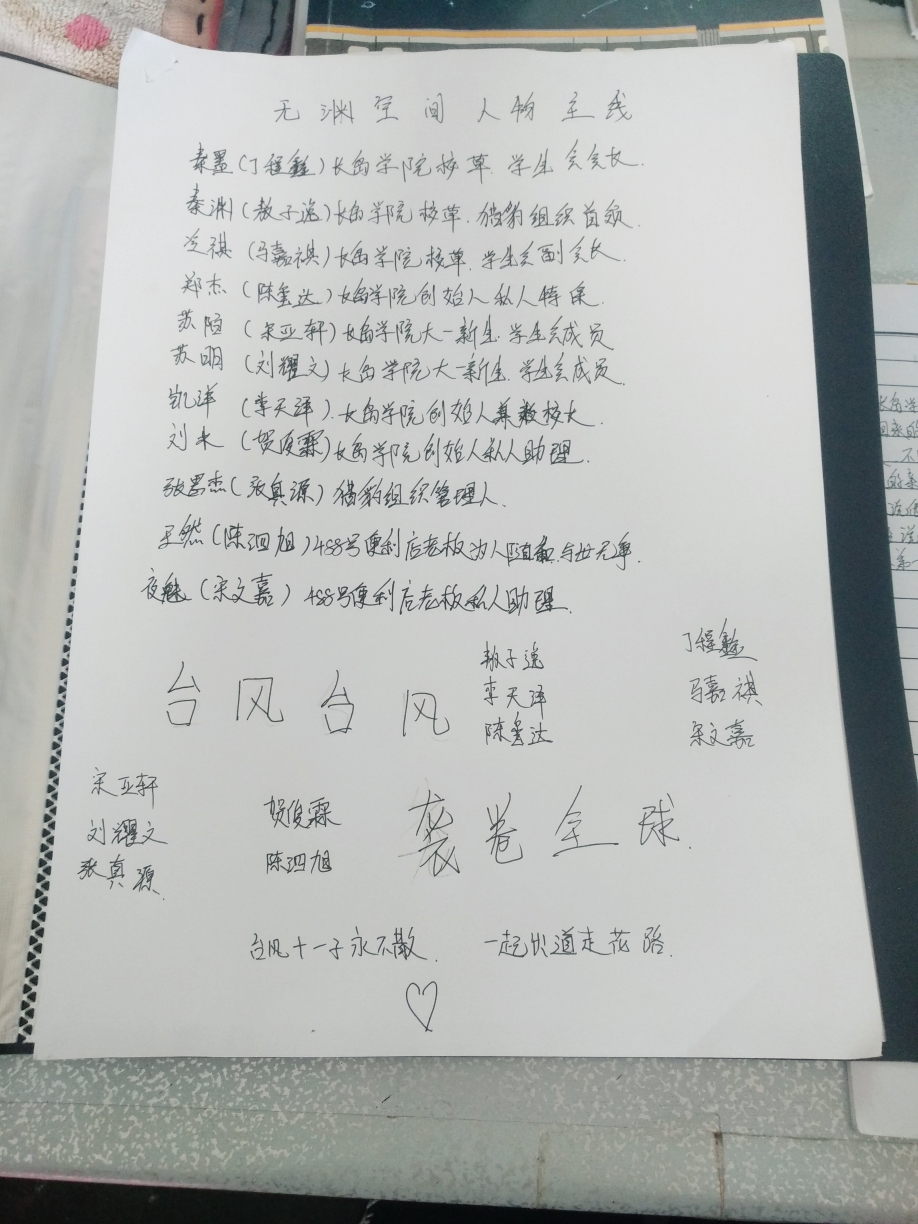 无渊空间人物主线
秦墨(丁程鑫)长岛学院校草.学生会会长.
秦渊(敖子逸)长岛学院校草.猎豹组织首领.
凌祺(马嘉祺)长岛学院校草.学生会副会长.
郑杰(陈玺达)长岛学院创始人私人特保.
苏陌(宋亚轩)长岛学院大一新生.学生会成员
苏明(刘耀文)长岛学院大一新生.学生会成员.
凯泽(李天泽).长岛学院创始人兼教校长.
刘木(贺俊霖)长岛学院创始人私人助理.
张思杰(张真源)猎豹组织管理人.
王然(陈泗旭)488号便利店老板.为人随和.与世无争.
夜魅(宋文嘉)488号便利店老板私人助理.
台风台风
敖子逸
李天泽
陈玺达
丁程鑫
马嘉祺
宋文嘉
宋亚轩
刘耀文
张真源.
贺俊霖
陈泗旭
袭卷全球.
台风十一子永不散. 一起出道走花路.